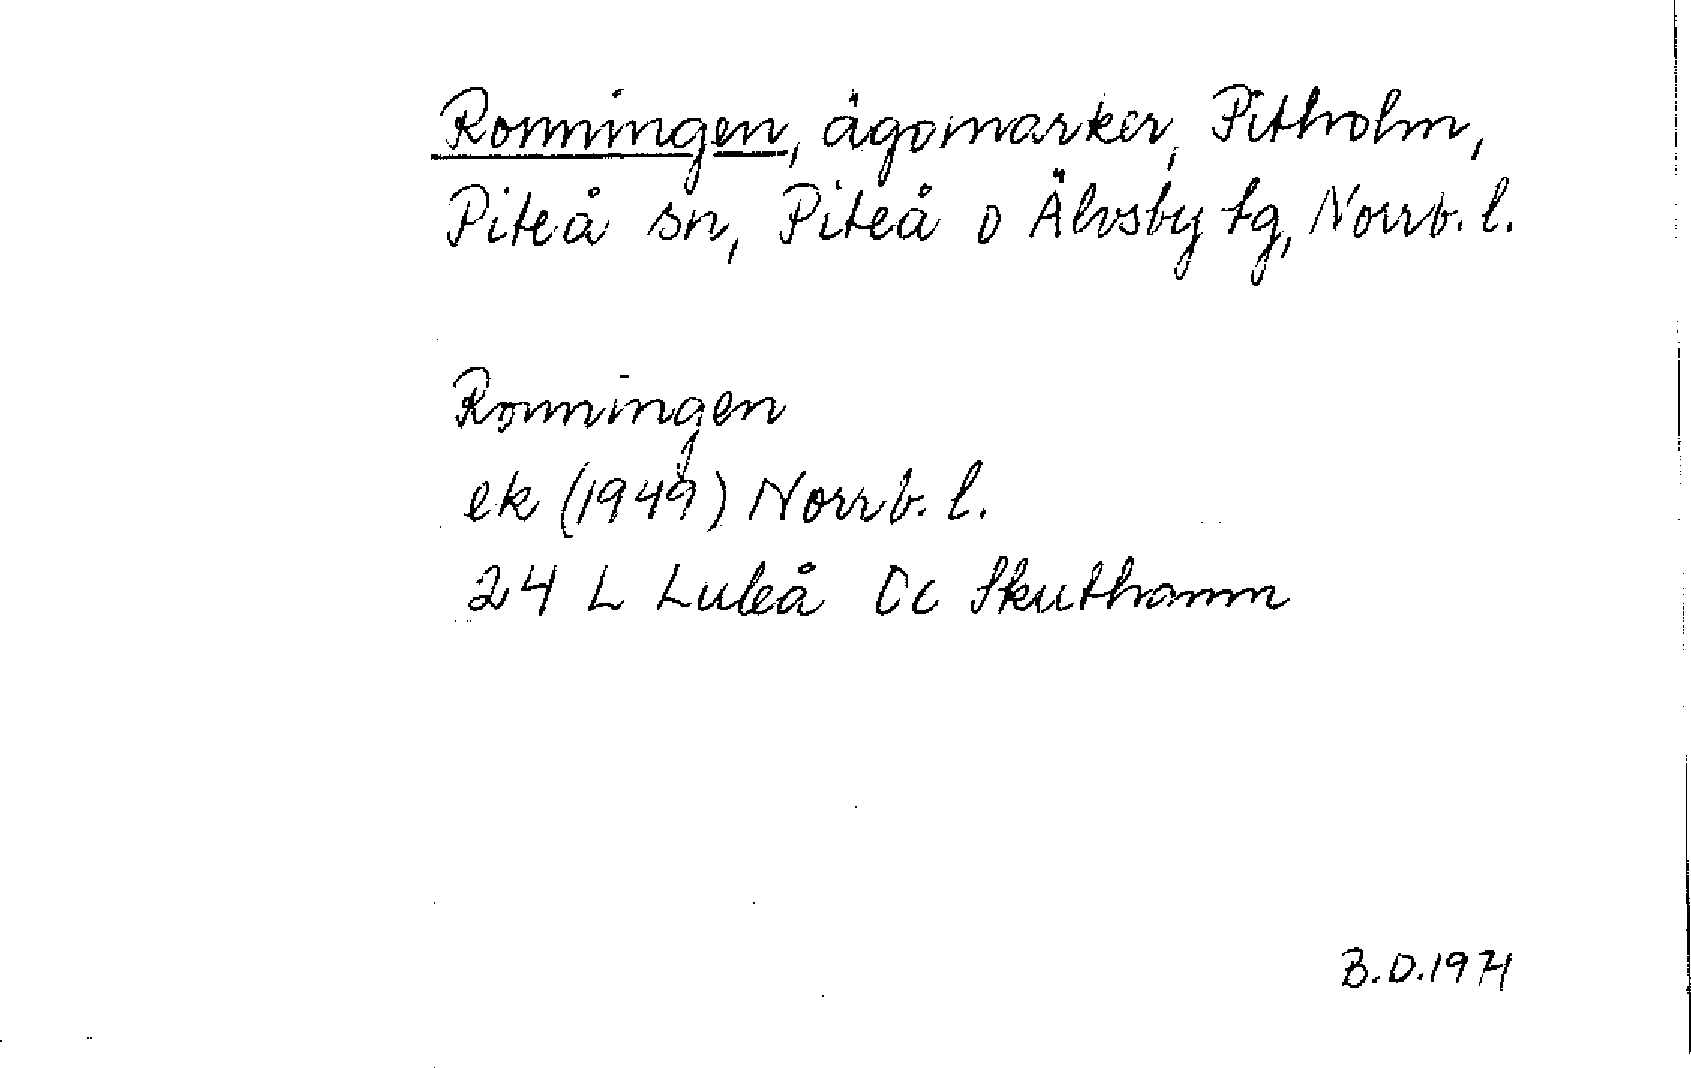 Ronningen, ägomarker, Pitholm,
Piteå sn, Piteå o Älvsby tg, Norrb. l.
Ronningen
ek (1949) Norrb. l.
24 L Luleå Cc Skuthamn
B.D. 1971